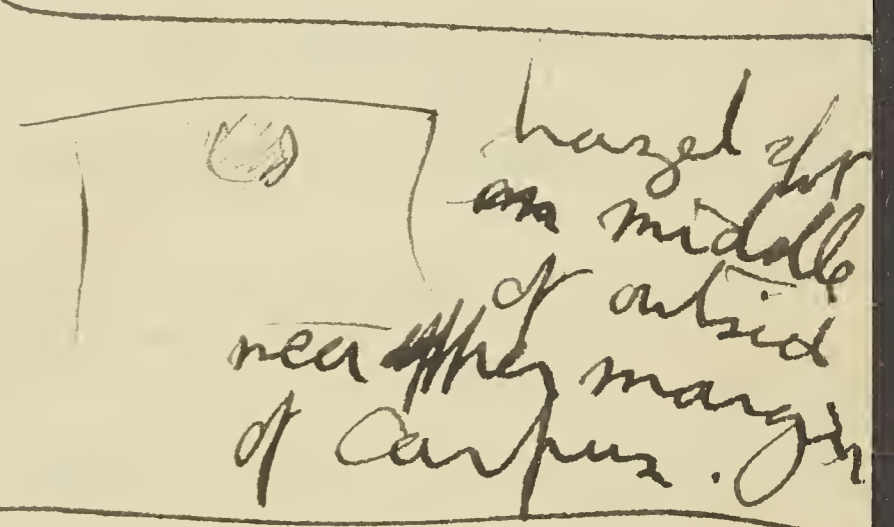 hazel spot
on middle
of outsid
near upper margin
of Carpus.